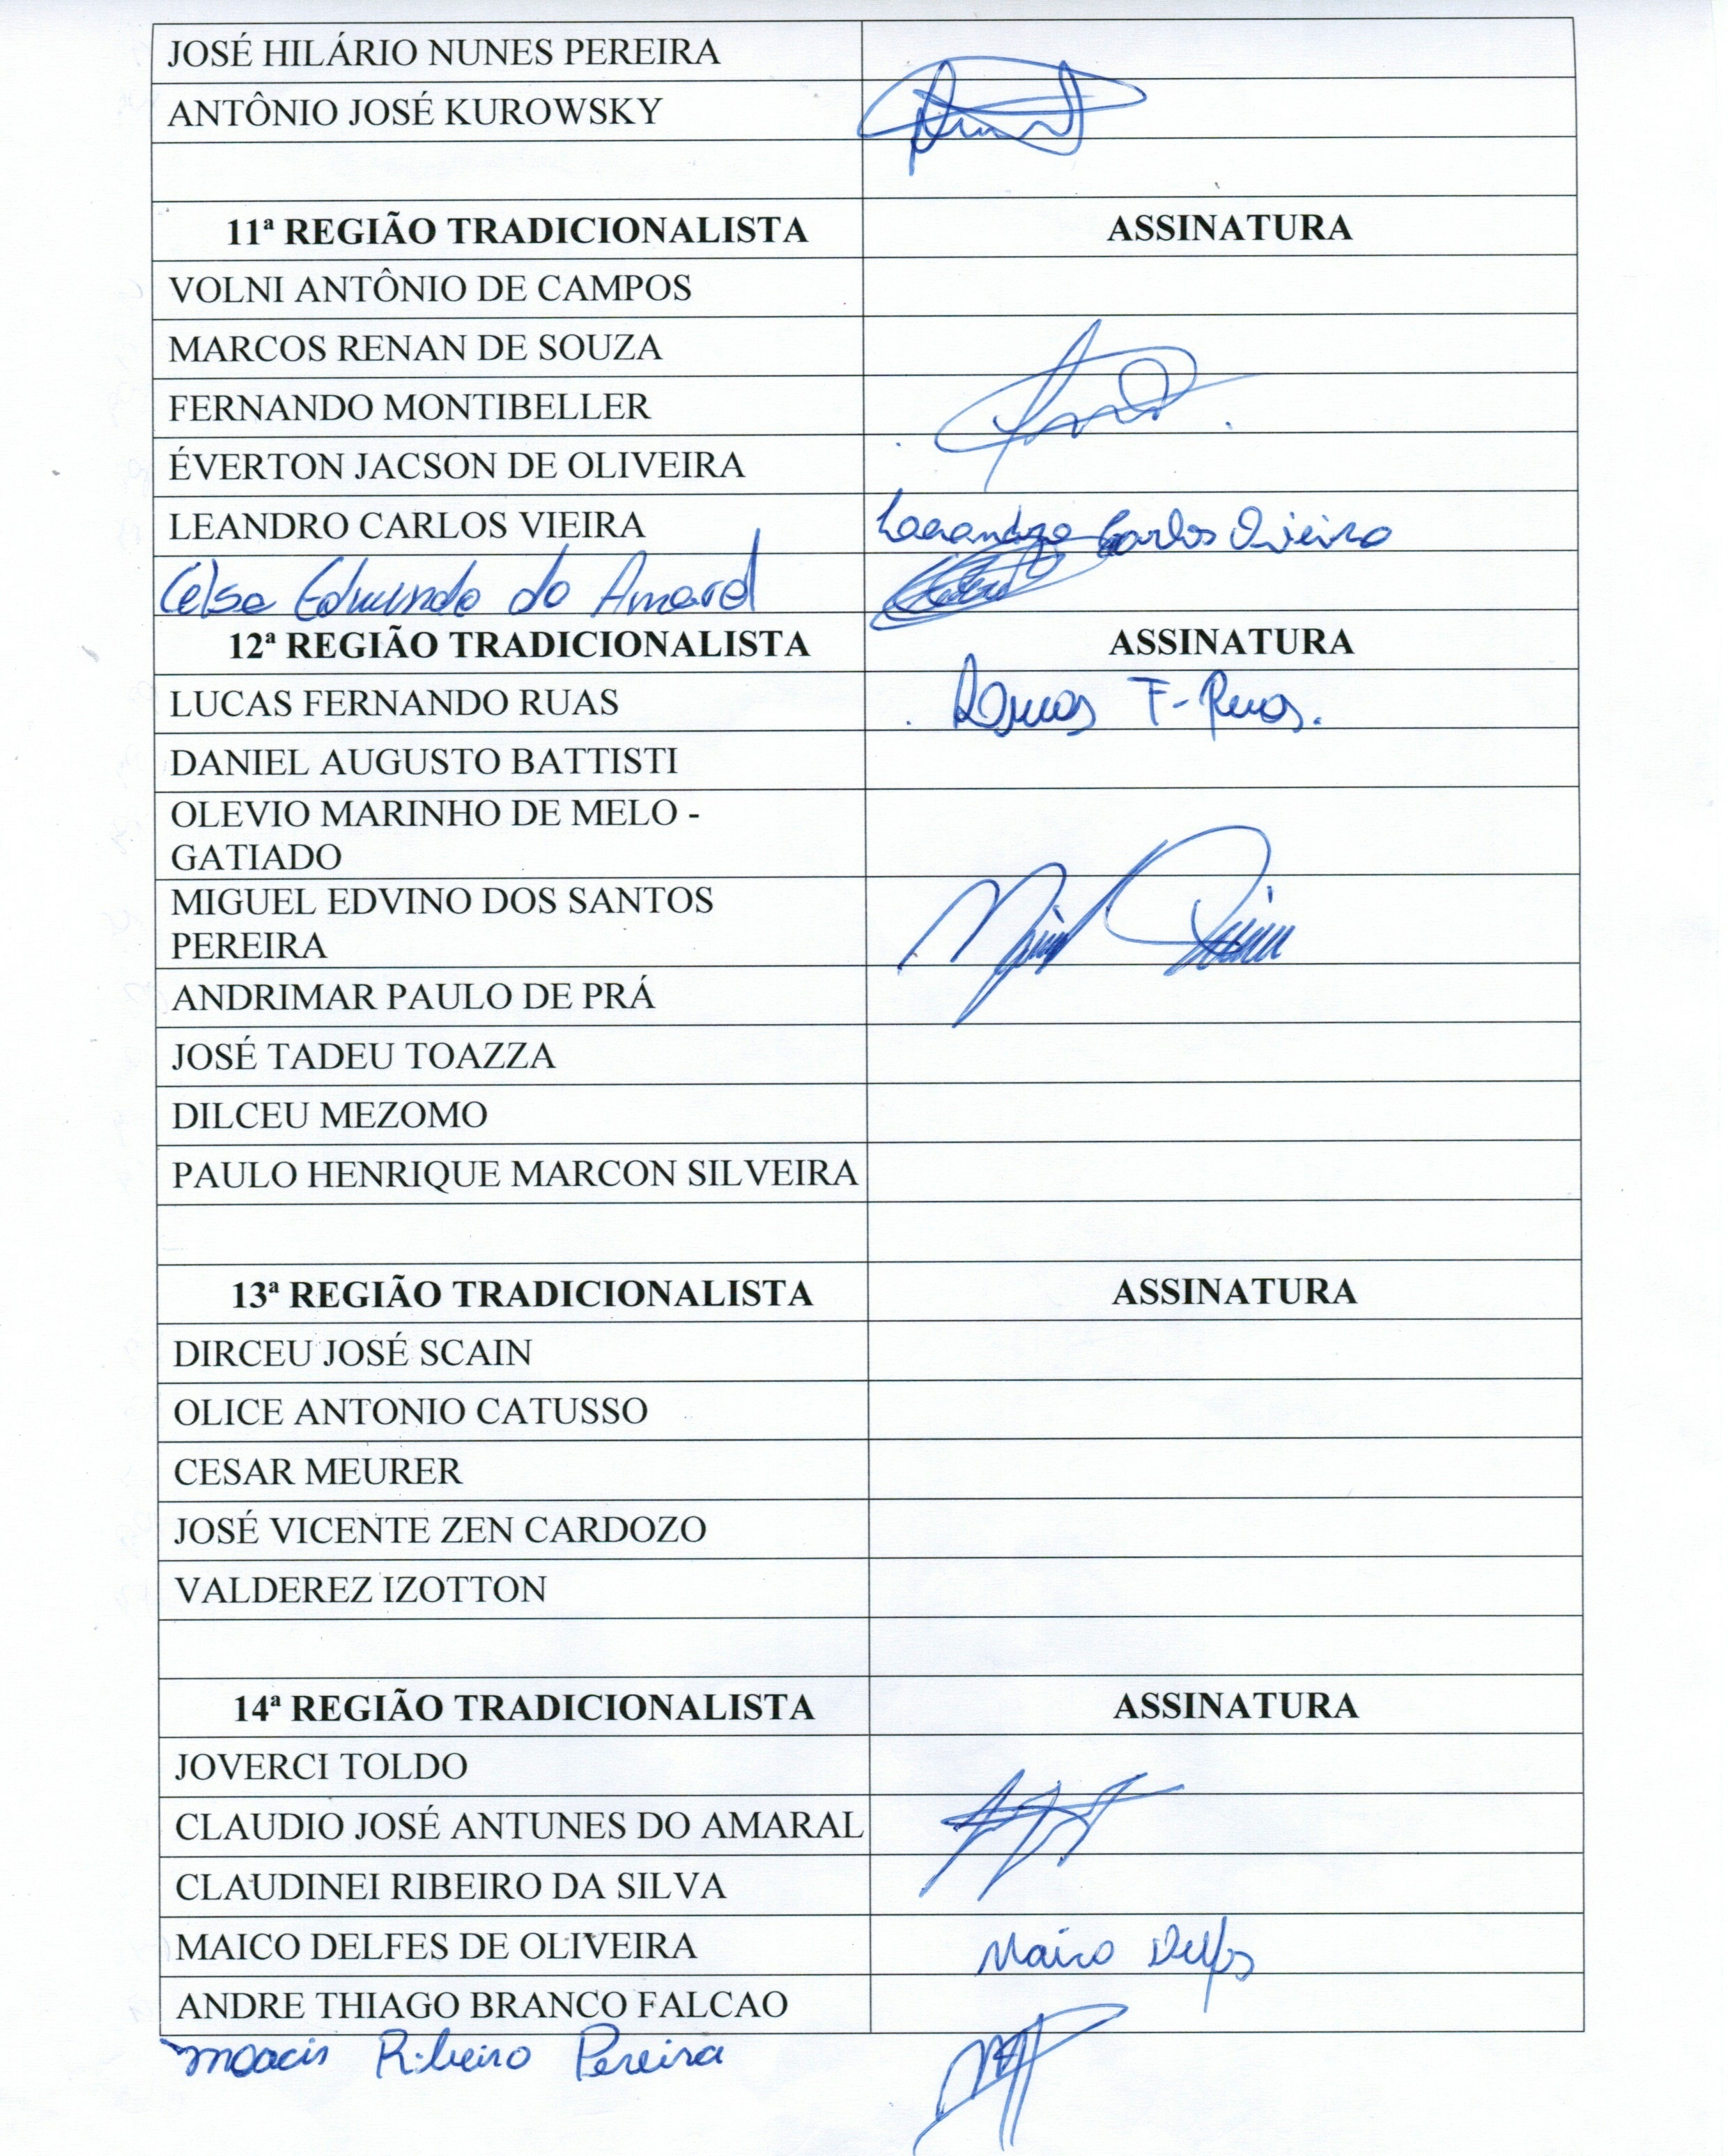 JOSÉ HILÁRIO NUNES PEREIRA
ANTÔNIO JOSÉ KUROWSKY
11ª REGIÃO TRADICIONALISTA ASSINATURA
VOLNI ANTÔNIO DE CAMPOS
MARCOS RENAN DE SOUZA
FERNANDO MONTIBELLER
ÉVERTON JACSON DE OLIVEIRA
LEANDRO CARLOS VIEIRA Carlos Vieira
Celso Edmundo do Amaral
12ª REGIÃO TRADICIONALISTA ASSINATURA
LUCAS FERNANDO RUAS F- Ruas.
DANIEL AUGUSTO BATTISTI
OLEVIO MARINHO DE MELO -
GATIADO
MIGUEL EDVINO DOS SANTOS
PEREIRA
ANDRIMAR PAULO DE PRÁ
JOSÉ TADEU TOAZZA
DILCEU MEZOMO
PAULO HENRIQUE MARCON SILVEIRA
13ª REGIÃO TRADICIONALISTA ASSINATURA
DIRCEU JOSÉ SCAIN
OLICE ANTONIO CATUSSO
CESAR MEURER
JOSÉ VICENTE ZEN CARDOZO
VALDEREZ IZOTTON
14ª REGIÃO TRADICIONALISTA ASSINATURA
JOVERCI TOLDO
CLAUDIO JOSÉ ANTUNES DO AMARAL
CLAUDINEI RIBEIRO DA SILVA
MAICO DELFES DE OLIVEIRA Maico Delfes
ANDRE THIAGO BRANCO FALCAO
Moacir Ribeiro Pereira